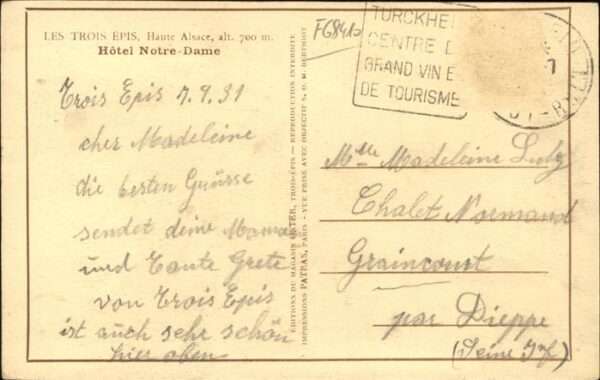 LES TROIS ÉPIS, Haute Alsace, alt. 700 m.
Hôtel Notre-Dame
Trois Epis 7.9.31
cher Madeleine
die besten Grüsse
sendet deine Maman
und Tante Grete
von Trois Epis
ist auch sehr schön
hier oben
ÉDITIONS DU MAGASIN TROIS-ÉPIS — REPRODUCTION INTERDITE
IMPRESSIONS PATRAS, PARIS - VUE PRISE AVEC OBJECTIF S. O. M. BERTHIOT
TURCKHEI
CENTRE D
GRAND VIN E
DE TOURISME
Mlle Madeleine
Chalet Normand
Graincourt
par Dieppe
(Seine Inf)